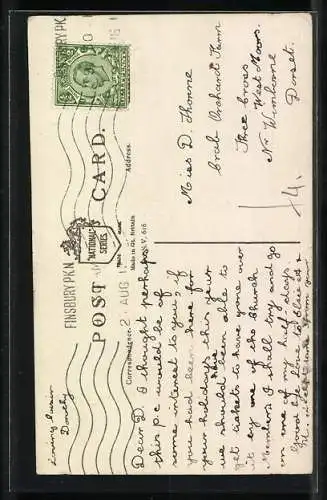 FINSBURY PK.N
2 AUG 11
FINSBURY PK.N
POST CARD.
NATIONAL SERIES
TRADE MARK
Made in Gt. Britain
Correspondence.
Address.
Miss D. Thorne
Crab Orchard Farm
Three Cross
West Moors.
Nr Wimborne
Dorset.
Dear D. I thought perhaps
this p.c would be of
some interest to you, if
you had been here for
your holidays this year
we should have been able to
get tickets to have gone over
it by one of the Church
Members I shall try and go
on one of my half days.
Good bye love to Blue &c.
from your
loving cousin
Dorothy